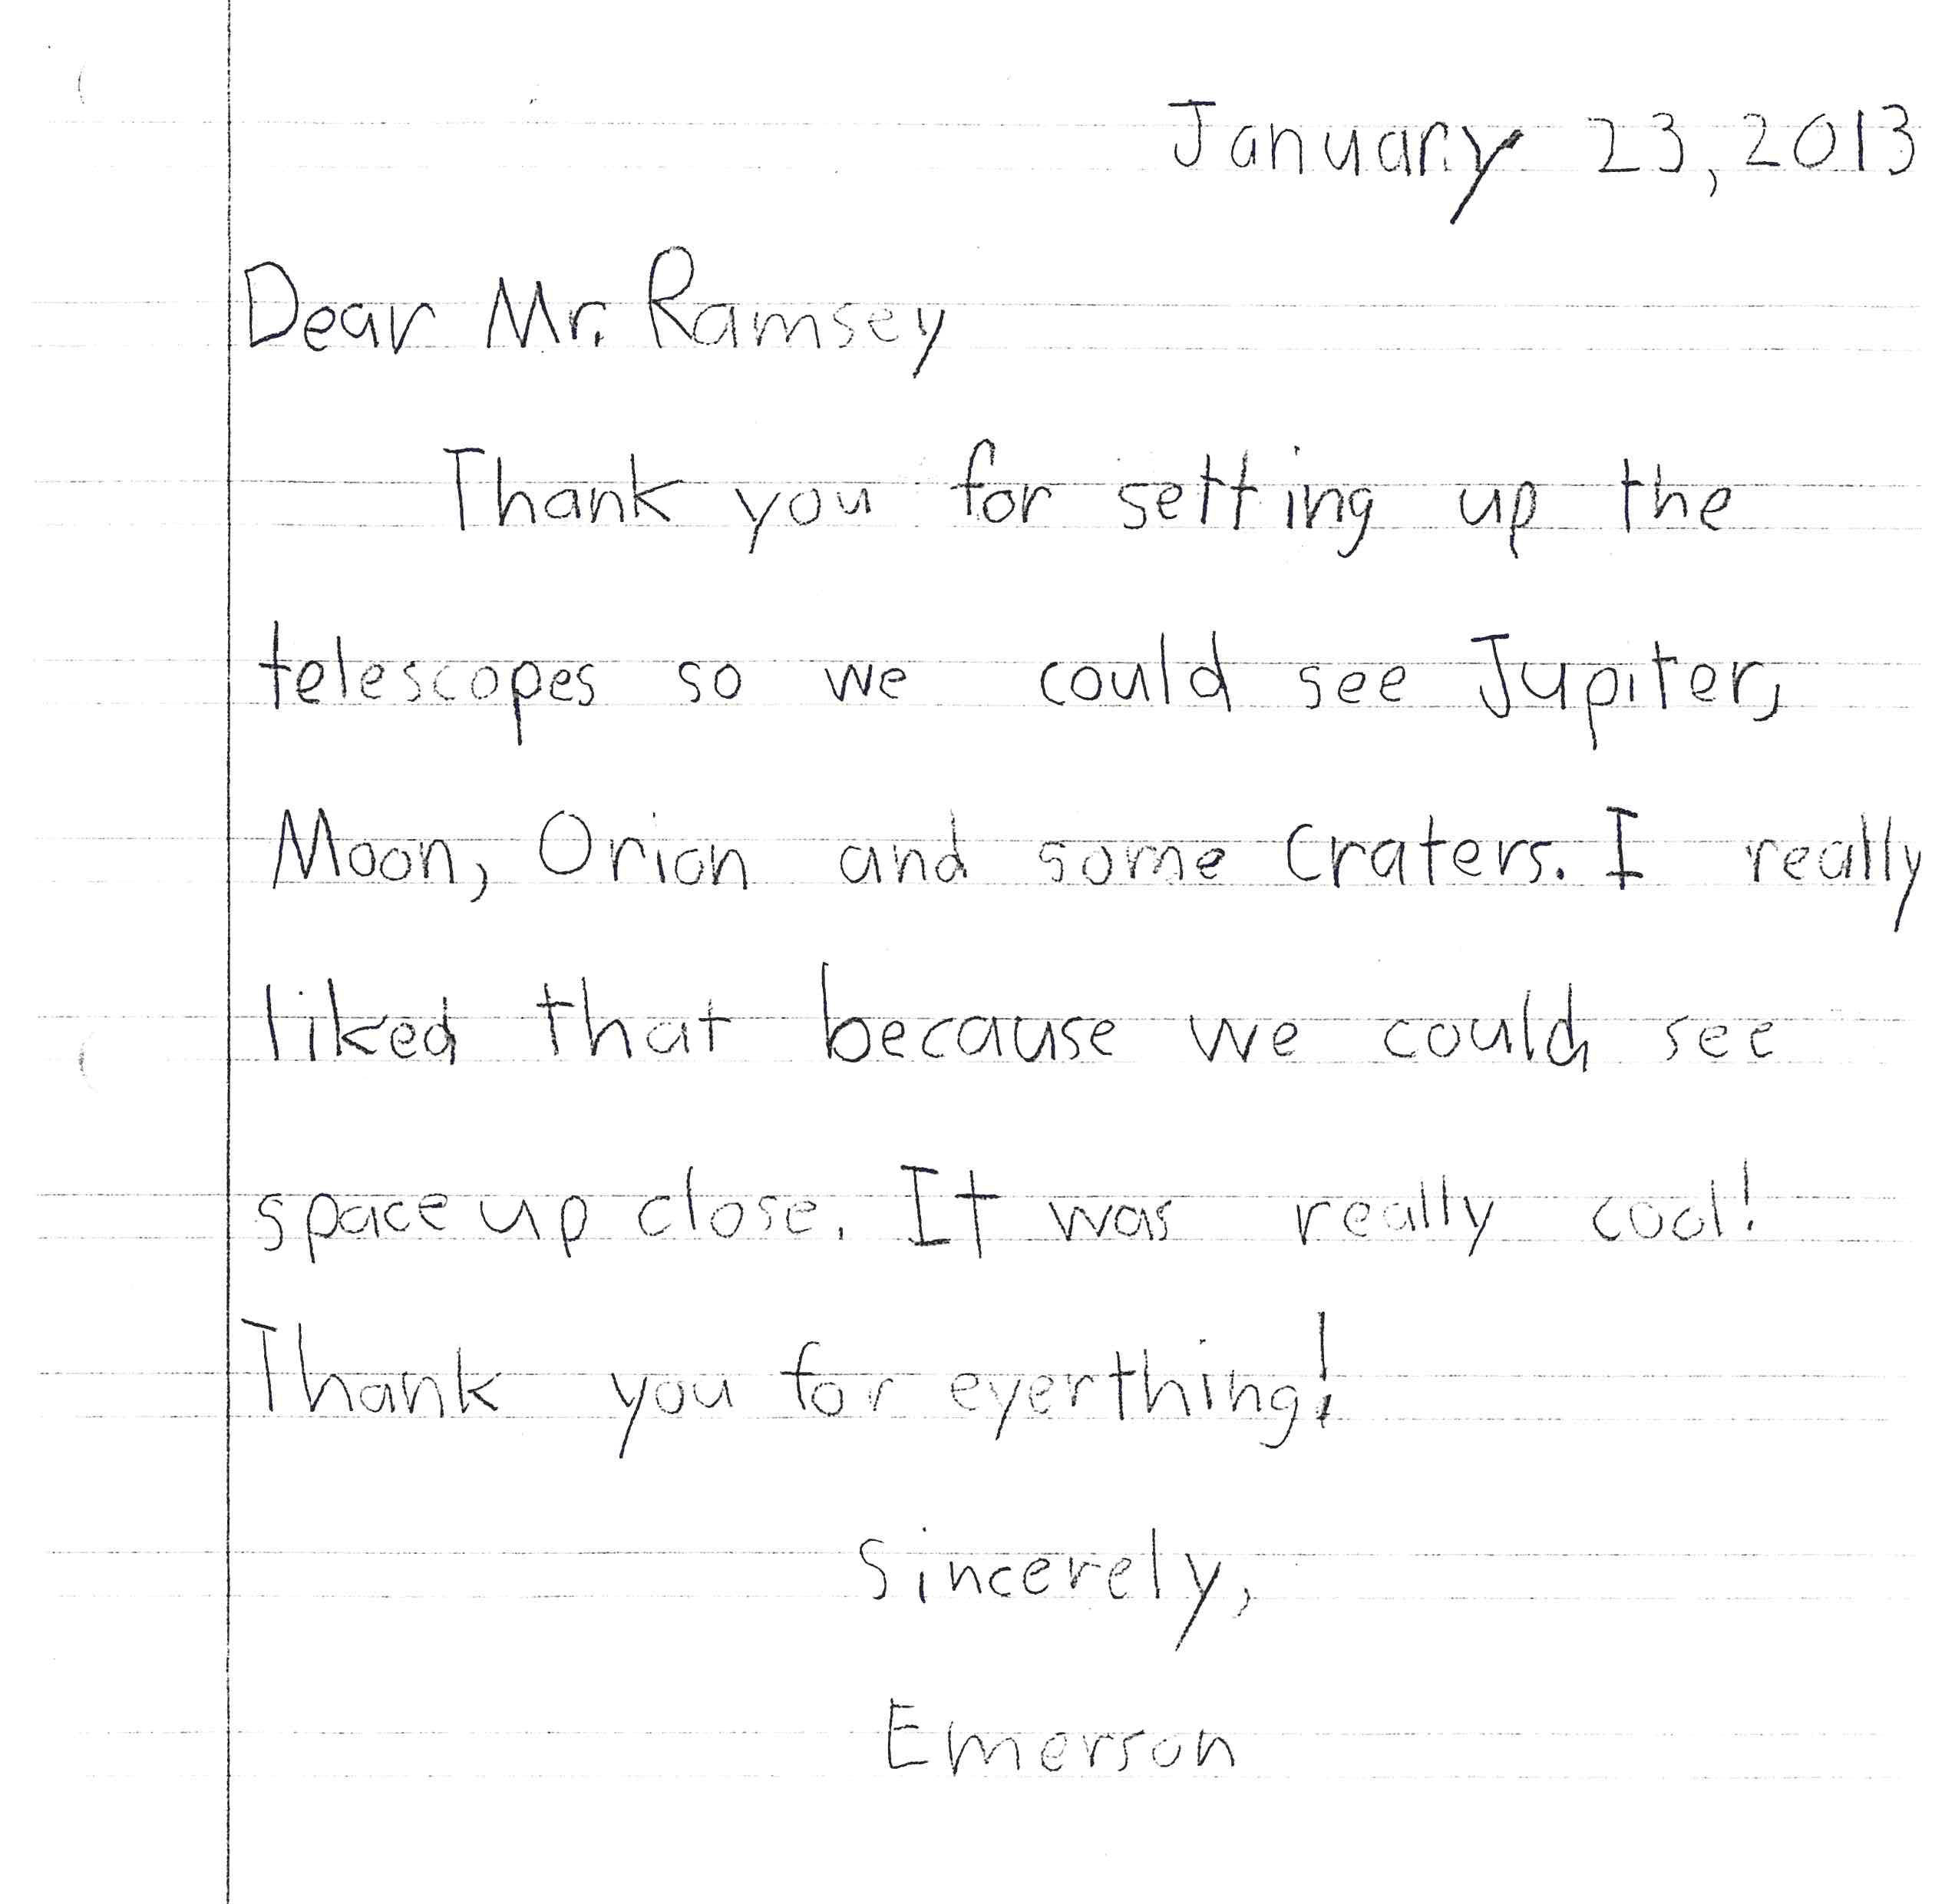 January 23, 2013
Dear Mr. Ramsey
Thank you for setting up the
telescopes so we could see Jupiter,
Moon, Orion and some Craters. I really
liked that because we could see
space up close. It was really cool!
Thank you for eyerthing!
Sincerely,
Emerson